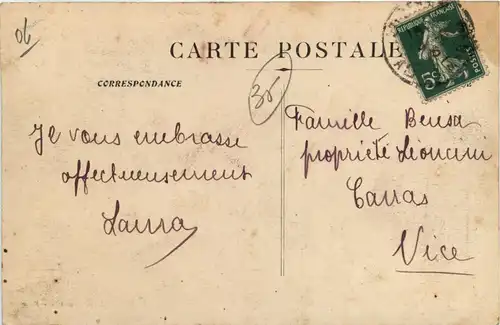 06
CARTE POSTALE
CORRESPONDANCE
35
Je vous embrasse
affectueusement
Laura
Famille Bensa
propriété Lioncini
Carras
Nice
5c